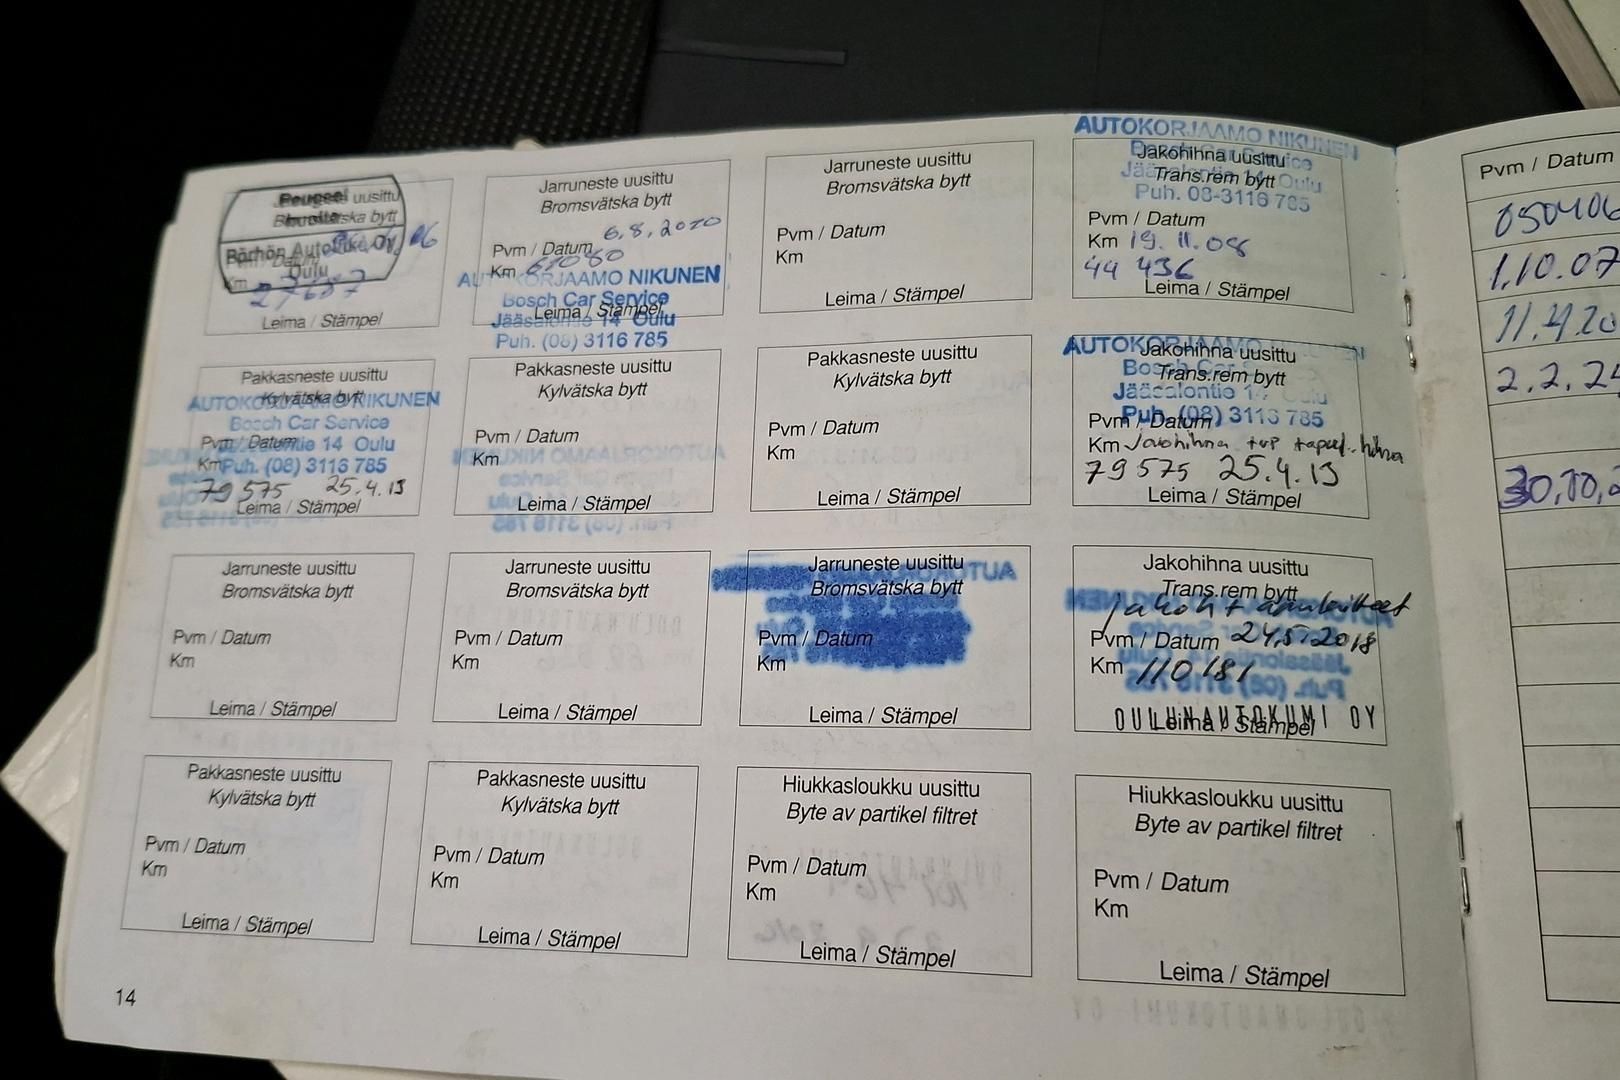 Peugeot
Huolto
Jarruneste uusittu
Bromsvätska bytt
Pörhön Autoliike Oy
Oulu
27687
Km
Leima / Stämpel
Jarruneste uusittu
Bromsvätska bytt
6.8.2010
Pvm / Datum
Km
AUTOKORJAAMO NIKUNEN
Bosch Car Service
Leima / Stämpel
Jääsalontie 14 Oulu
Puh. (08) 3116 785
Jarruneste uusittu
Bromsvätska bytt
Pvm / Datum
Km
Leima / Stämpel
AUTOKORJAAMO NIKUNEN
Bosch Car Service
Jakohihna uusittu
Jääsalontie 14 Oulu
Trans.rem bytt
Puh. 08-3116 785
Pvm / Datum
Km 19.11.08
44 436
Leima / Stämpel
Pakkasneste uusittu
Kylvätska bytt
AUTOKORJAAMO NIKUNEN
Bosch Car Service
Pvm / Datum
Jääsalontie 14 Oulu
Km
Puh. (08) 3116 785
79 575 25.4.13
Leima / Stämpel
Pakkasneste uusittu
Kylvätska bytt
Pvm / Datum
Km
Leima / Stämpel
Pakkasneste uusittu
Kylvätska bytt
Pvm / Datum
Km
Leima / Stämpel
AUTOKORJAAMO NIKUNEN
Jakohihna uusittu
Bosch Car
Trans.rem bytt
Jääsalontie 14 Oulu
Puh. (08) 3113 785
Pvm / Datum
Km Jakohihna + vp + apul. hihna
79 575 25.4.13
Leima / Stämpel
Jarruneste uusittu
Bromsvätska bytt
Pvm / Datum
Km
Leima / Stämpel
Jarruneste uusittu
Bromsvätska bytt
Pvm / Datum
Km
Leima / Stämpel
Jarruneste uusittu
Bromsvätska bytt
Pvm / Datum
Km
Leima / Stämpel
Jakohihna uusittu
Trans.rem bytt
Pvm / Datum 24.5.2018
Km 110 181
OULUNAUTOKUMI OY
Leima / Stämpel
Pakkasneste uusittu
Kylvätska bytt
Pvm / Datum
Km
Leima / Stämpel
Pakkasneste uusittu
Kylvätska bytt
Pvm / Datum
Km
Leima / Stämpel
Hiukkasloukku uusittu
Byte av partikel filtret
Pvm / Datum
Km
Leima / Stämpel
Hiukkasloukku uusittu
Byte av partikel filtret
Pvm / Datum
Km
Leima / Stämpel
14
Pvm / Datum
050406
1.10.07
11.4.20
2.2.2
30.10.2